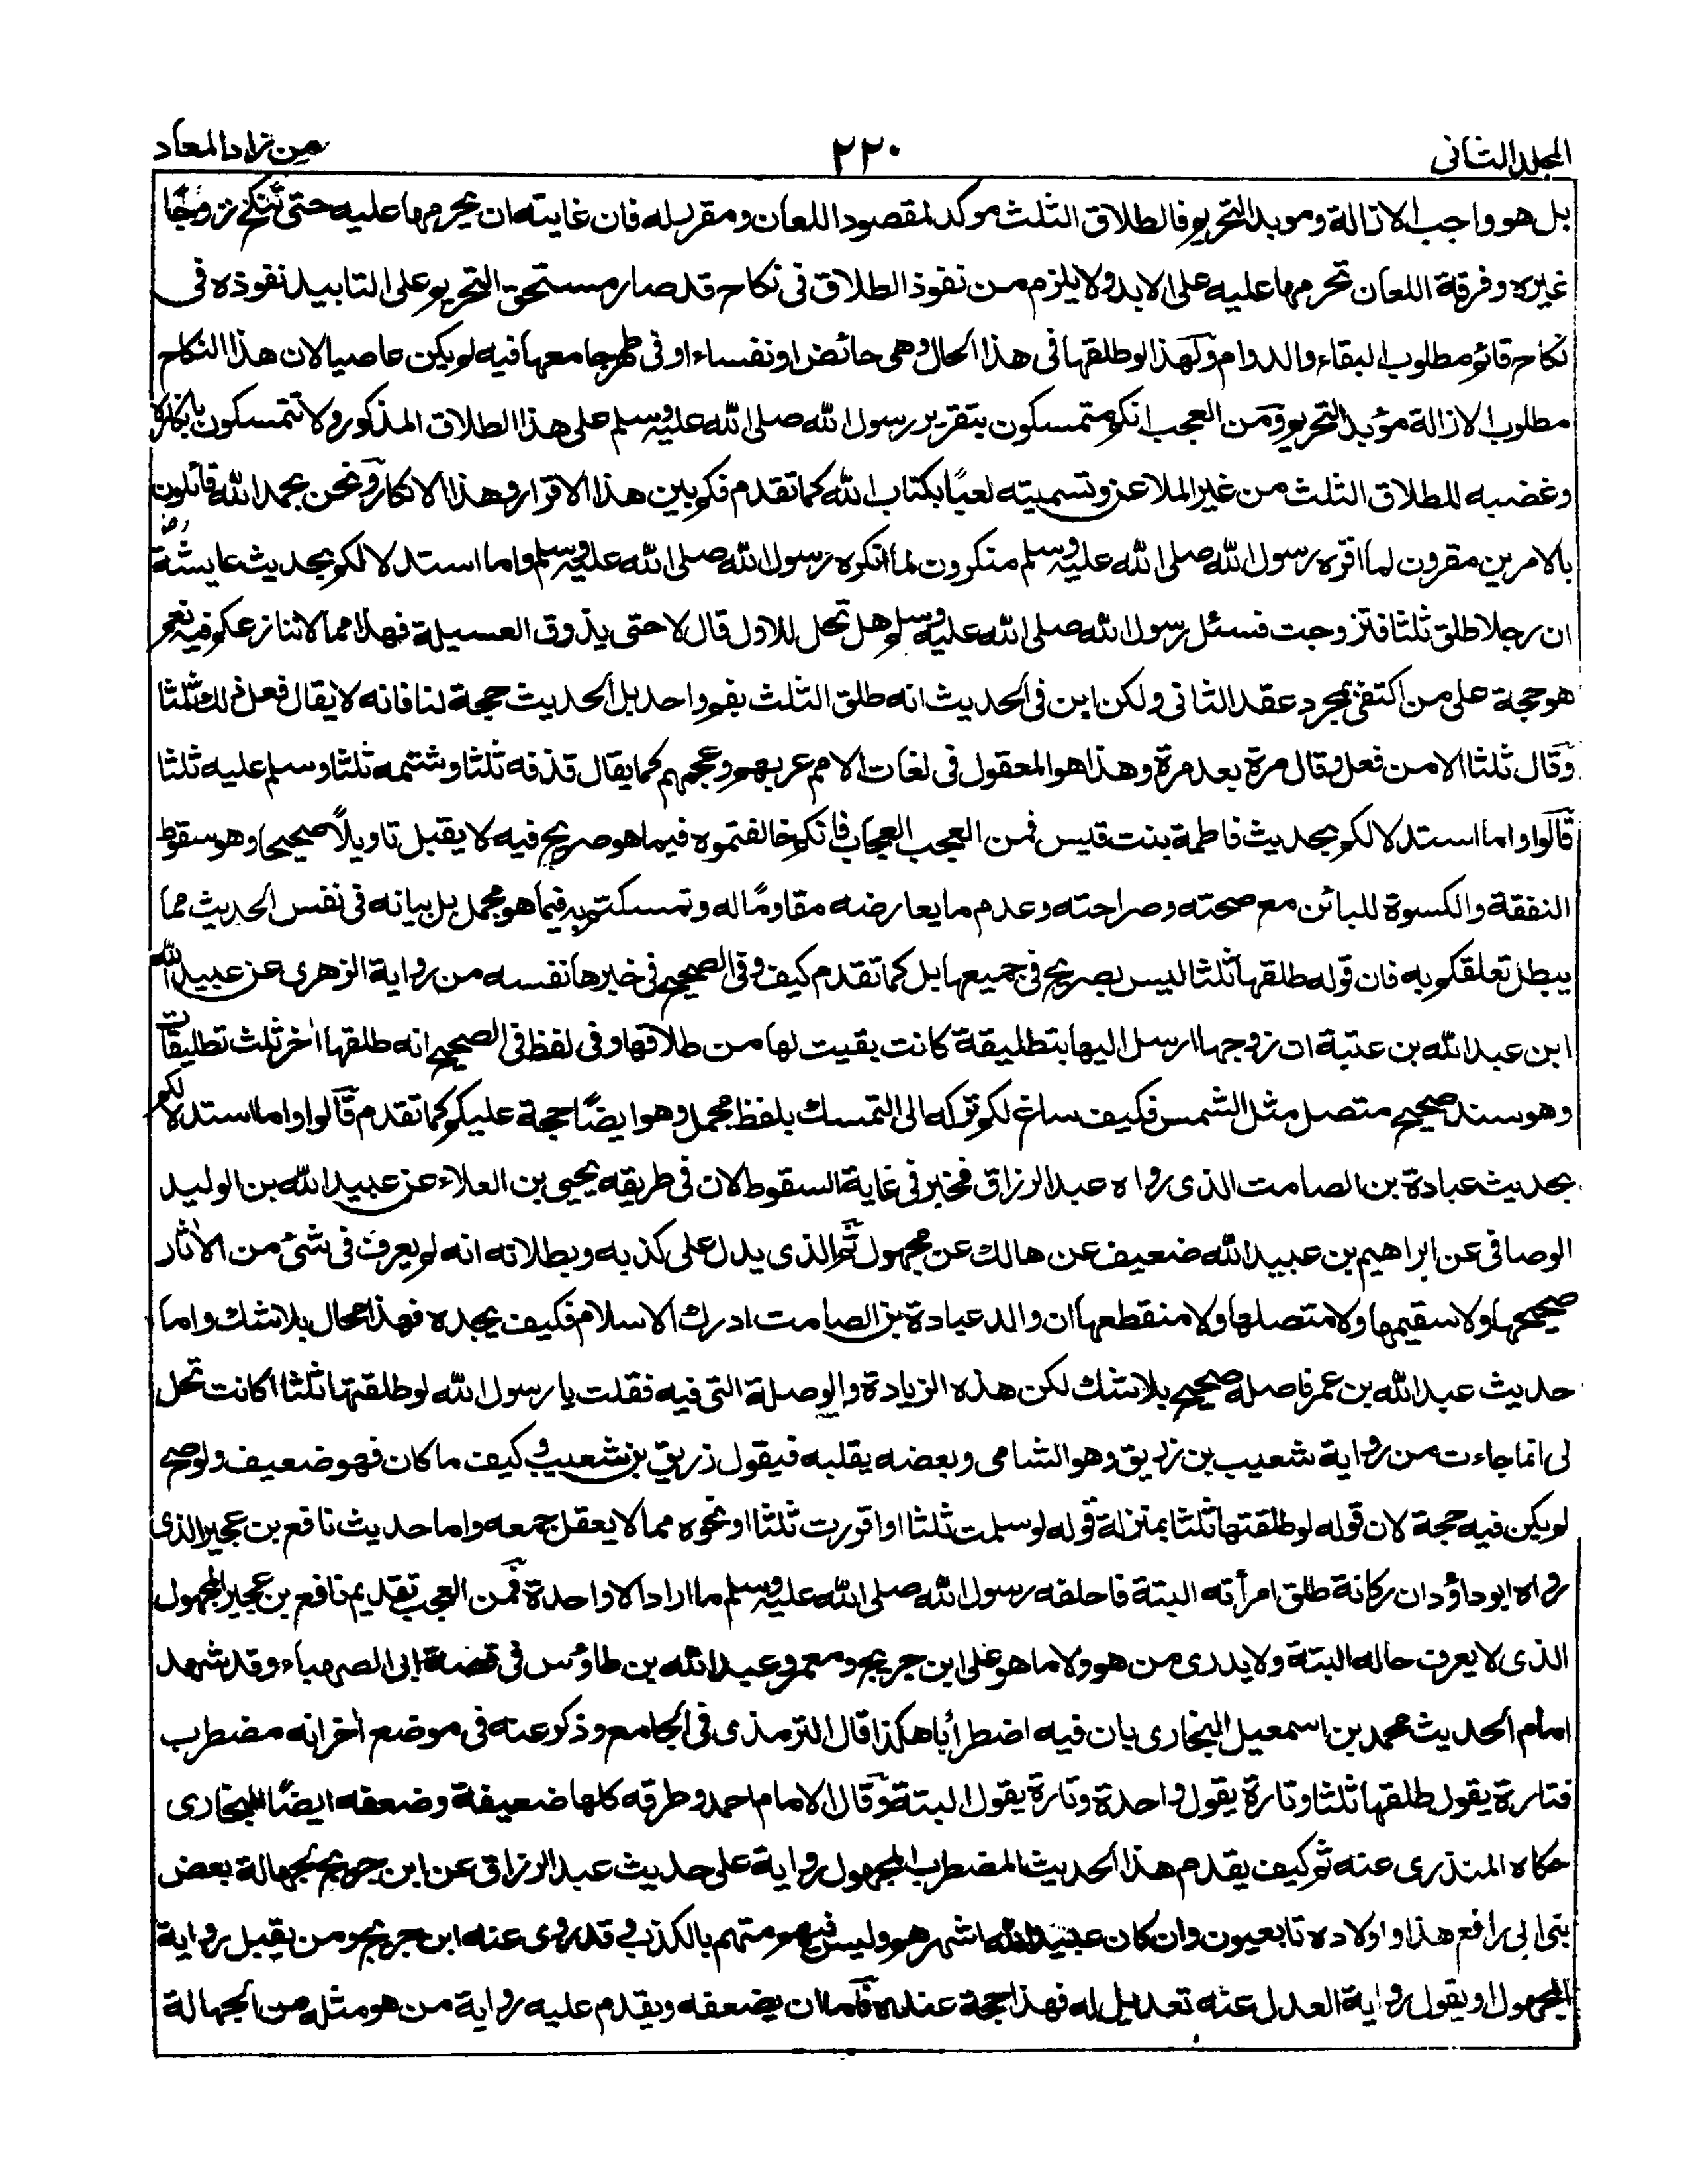 المجلد الثانى
٢٢٠
من زاد المعاد
بل هو واجب الازالة وموبد التحريم فالطلاق الثلث موكد لمقصود اللعان ومقرر له فان غايته ان يحرمها عليه حتى تنكح زوجًا
غيره وفرقة اللعان تحرمها عليه على الابد ولا يلزم من نفوذ الطلاق فى نكاح قد صار مستحق التحريم على التابيد نفوذه فى
نكاح قائم مطلوب البقاء والدوام ولهذا لو طلقها فى هذا الحال وهى حائض او نفساء او فى طهر جامعها فيه لم يكن عاصيا لان هذا النكاح
مطلوب الازالة مؤبد التحريم ومن العجب انكم متمسكون بتقرير رسول الله صلى الله عليه وسلم على هذا الطلاق المذكور ولا تتمسكون بانكاره
وغضبه للطلاق الثلث من غير الملاعن وتسميته لعبًا بكتاب الله كما تقدم فكم بين هذا الاقرار وهذا الانكار ونحن بحمد الله قائلون
بالامرين مقرون لما اقره رسول الله صلى الله عليه وسلم منكرون لما انكره رسول الله صلى الله عليه وسلم واما استدلالكم بحديث عايشة رض
ان رجلا طلق ثلثا فتزوجت فسئل رسول الله صلى الله عليه وسلم هل تحل للاول قال لا حتى يذوق العسيلة فهذا مما لا ننازعكم فيه نعم
هو حجة على من اكتفى بمجرد عقد الثانى ولكن اين فى الحديث انه طلق الثلث بفم واحد بل الحديث حجة لنا فانه لا يقال فعل ذلك ثلثا
وقال ثلثا الا من فعل وقال مرة بعد مرة وهذا هو المعقول فى لغات الامم عربهم وعجمهم كما يقال قذفه ثلثا وشتمه ثلثا وسلم عليه ثلثا
قالوا واما استدلالكم بحديث فاطمة بنت قيس فمن العجب العجاب فانكم خالفتموه فيما هو صريح فيه لا يقبل تاويلاً صحيحا وهو سقوط
النفقة والكسوة للبائن مع صحته وصراحته وعدم ما يعارضه مقاومًا له وتمسكتم به فيما هو مجمل بل بيانه فى نفس الحديث مما
يبطل تعلقكم به فان قوله طلقها ثلثا ليس بصريح فى جميعها بل كما تقدم كيف وفى الصحيح فى خبرها نفسه من رواية الزهرى عن عبيد الله
ابن عبد الله بن عتبة ان زوجها ارسل اليها بتطليقة كانت بقيت لها من طلاقها وفى لفظ فى الصحيح انه طلقها اٰخر ثلث تطليقات
وهو سند صحيح متصل مثل الشمس فكيف ساغ لكم تركه الى التمسك بلفظ مجمل وهو ايضًا حجة عليكم كما تقدم قالوا واما استدلالكم
بحديث عبادة بن الصامت الذى رواه عبد الرزاق فخبر فى غاية السقوط لان فى طريقه يحيى بن العلاء عن عبيد الله بن الوليد
الوصافى عن ابراهيم بن عبيد الله ضعيف عن هالك عن مجهول ثم الذى يدل على كذبه وبطلانه انه لم يعرف فى شئ من الاٰثار
صحيحها ولا سقيمها ولا متصلها ولا منقطعها ان والد عبادة بن الصامت ادرك الاسلام فكيف بجده فهذا محال بلا شك واما
حديث عبد الله بن عمر فاصله صحيح بلا شك لكن هذه الزيادة والوصلة التى فيه فقلت يا رسول الله لو طلقتها ثلثا اكانت تحل
لى انما جاءت من رواية شعيب بن زريق وهو الشامى وبعضه يقلبه فيقول زريق بن شعيب وكيف ما كان فهو ضعيف ولو صح
لم يكن فيه حجة لان قوله لو طلقتها ثلثا بمنزلة قوله لو سلمت ثلثا او اقررت ثلثا او نحوه مما لا يعقل جمعه واما حديث نافع بن عجير الذى
رواه ابو داؤد ان ركانة طلق امرأته البتة فاحلفه رسول الله صلى الله عليه وسلم ما اراد الا واحدة فمن العجب تقديم نافع بن عجير المجهول
الذى لا يعرف حاله البتة ولا يدرى من هو ولا ما هو على ابن جريج ومعمر وعبد الله بن طاؤس فى قصة ابى الصهباء وقد شهد
امام الحديث محمد بن اسمعيل البخارى بان فيه اضطرابا هكذا قال الترمذى فى الجامع وذكر عنه فى موضع اٰخر انه مضطرب
فتارة يقول طلقها ثلثا وتارة يقول واحدة وتارة يقول البتة وقال الامام احمد وطرقه كلها ضعيفة وضعفه ايضًا البخارى
حكاه المنذرى عنه ثم كيف يقدم هذا الحديث المضطرب المجهول رواية على حديث عبد الرزاق عن ابن جريج لجهالة بعض
بنى ابى رافع هذا واولاده تابعيون وان كان عبيد الله اشهرهم وليس فيهم متهم بالكذب وقد روى عنه ابن جريج ومن يقبل رواية
المجهول او يقول رواية العدل عنه تعديل له فهذا حجة عنده فاما ان يضعفه ويقدم عليه رواية من هو مثله من الجهالة